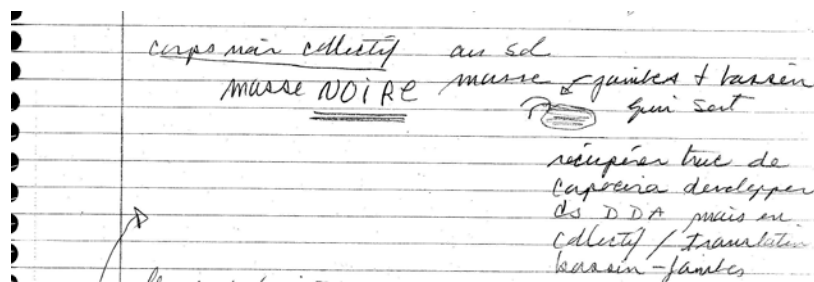 corps noir collectif au sol
masse NOIRE masse jambes + bassin
qui sort
récupérer truc de
capoeira developper
ds DDA mais en
collectif / translation
bassin - jambes